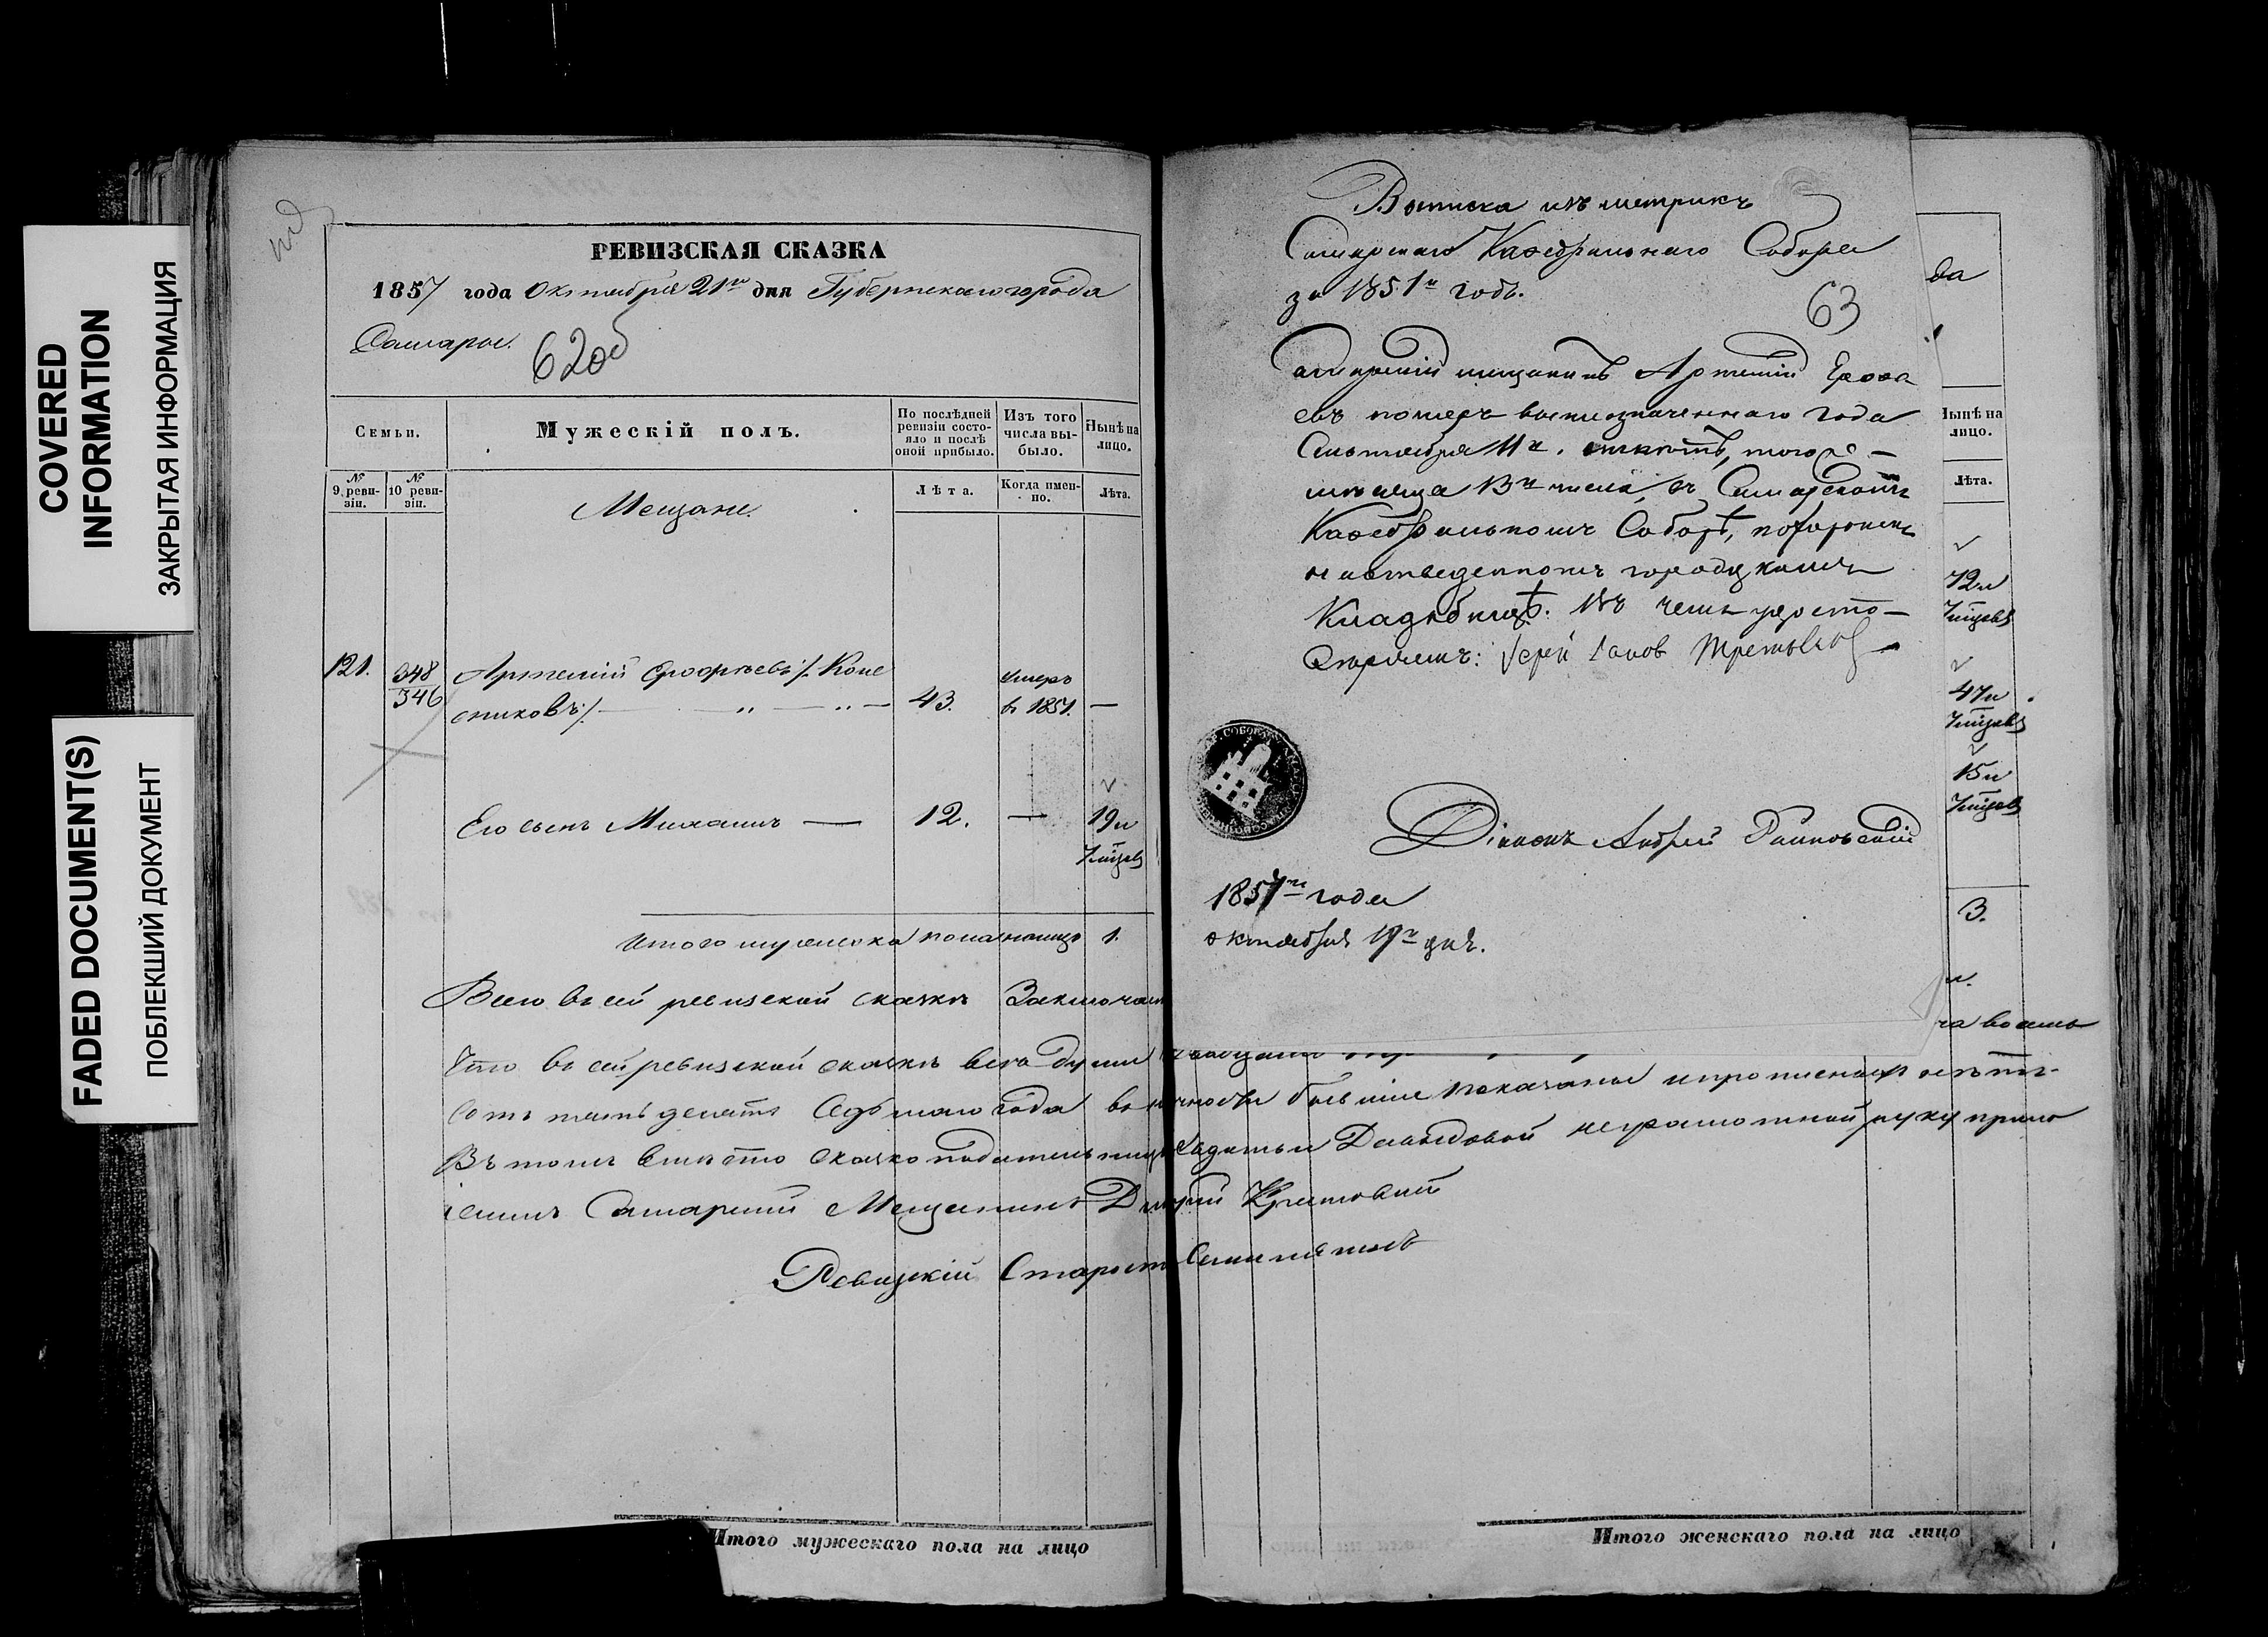 COVERED
INFORMATION
ЗАКРЫТАЯ ИНФОРМАЦИЯ
FADED DOCUMENT(S)
ПОБЛЕКШИЙ ДОКУМЕНТ
РЕВИЗСКАЯ СКАЗКА
1857 года Октября 21го дня Губернскаго города
Самары.
62об
Семьи.
Мужескій полъ.
По послѣдней
ревизіи состо-
яло и послѣ
оной прибыло.
Изъ того
числа вы-
было.
Нынѣ на
лицо.
№
9 реви-
зіи.
№
10 реви-
зіи.
Мещане.
Лѣта.
Когда имен-
но.
Лѣта.
121.
348
346
Артемій Ерофѣевъ /: Коне
виковъ :/
43.
умеръ
въ 1851.
—
Его сынъ Михаилъ —
12.
—
19и
7мѣсяц
Итого мужеска пола налицо 1.
Всего въ сей ревизской сказкѣ Заключает
Что въ сей ревизской сказкѣ всѣ души
сотъ пятьдесятъ Седьмаго года въ личности бывшіе показаны и прописных нѣтъ-
Въ томъ вмѣсто сказкоподательницы Авдотьи Давыдовой неграмотной руку прило
Самарскій Мещанинъ
Ревизскій Староста
Итого мужескаго пола на лицо
Выписка изъ метрикъ
Самарскаго Каѳедральнаго Собора
за 1851й годъ.
63
Самарскій мещанинъ Артемій Ероѳе
евъ померъ вышеозначеннаго года
Сентября 11го. отпѣтъ, того же —
мѣсяца 13го числа, въ Самарскомъ
Каѳедральномъ Соборѣ, похороненъ
на отведенномъ городскомъ
Кладбищѣ. Въ чемъ удосто—
Іерей Іаков Третьяков
Діаконъ Андрей
1857го года
октября 19го дня.
да
Нынѣ на
лицо.
Лѣта.
42и
7мѣсяц
47и
7мѣсяц
15и
7мѣсяц
3.
Итого женскаго пола на лицо